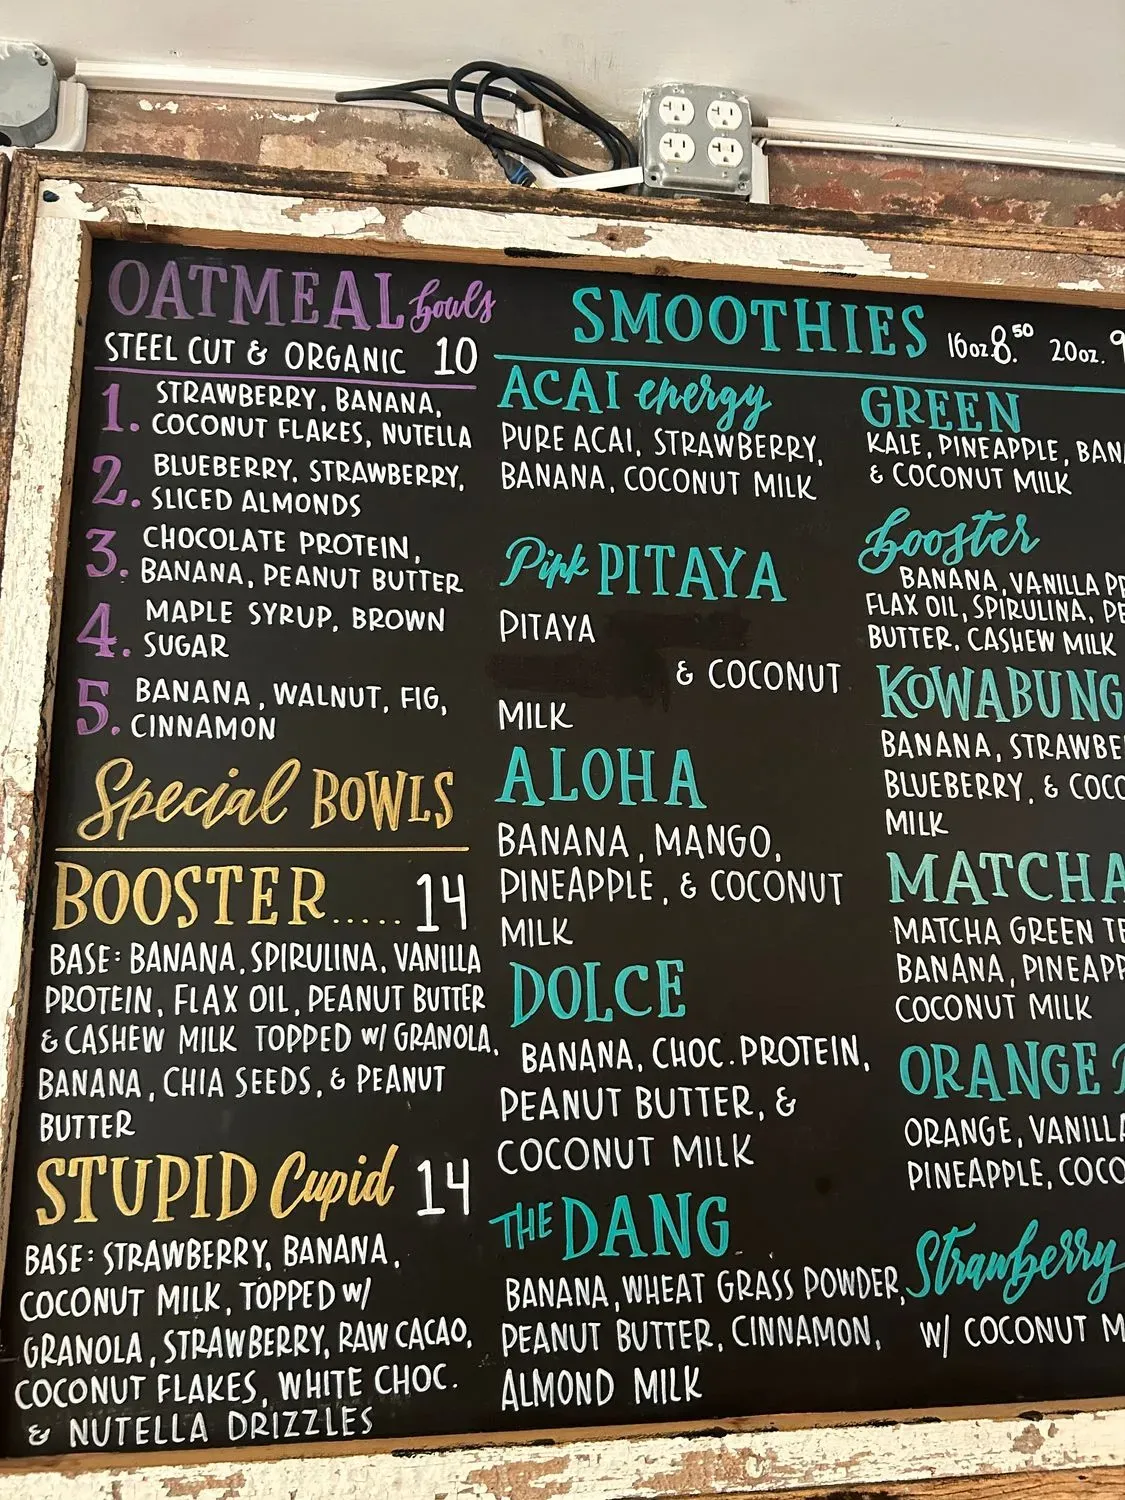 OATMEAL bowls
STEEL CUT & ORGANIC 10
1. STRAWBERRY, BANANA,
COCONUT FLAKES, NUTELLA
2. BLUEBERRY, STRAWBERRY,
SLICED ALMONDS
3. CHOCOLATE PROTEIN,
BANANA, PEANUT BUTTER
4. MAPLE SYRUP, BROWN
SUGAR
5. BANANA, WALNUT, FIG,
CINNAMON
Special BOWLS
BOOSTER..... 14
BASE: BANANA, SPIRULINA, VANILLA
PROTEIN, FLAX OIL, PEANUT BUTTER
& CASHEW MILK TOPPED W/ GRANOLA,
BANANA, CHIA SEEDS, & PEANUT
BUTTER
STUPID Cupid 14
BASE: STRAWBERRY, BANANA,
COCONUT MILK, TOPPED W/
GRANOLA, STRAWBERRY, RAW CACAO,
COCONUT FLAKES, WHITE CHOC.
& NUTELLA DRIZZLES
SMOOTHIES 16oz. 8.50 20oz.
ACAI energy
PURE ACAI, STRAWBERRY,
BANANA, COCONUT MILK
Pink PITAYA
PITAYA
& COCONUT
MILK
ALOHA
BANANA, MANGO,
PINEAPPLE, & COCONUT
MILK
DOLCE
BANANA, CHOC. PROTEIN,
PEANUT BUTTER, &
COCONUT MILK
THE DANG
BANANA, WHEAT GRASS POWDER,
PEANUT BUTTER, CINNAMON,
ALMOND MILK
GREEN
KALE, PINEAPPLE, BAN
& COCONUT MILK
booster
BANANA, VANILLA PR
FLAX OIL, SPIRULINA, PE
BUTTER, CASHEW MILK
KOWABUNG
BANANA, STRAWBE
BLUEBERRY, & COCO
MILK
MATCHA
MATCHA GREEN TE
BANANA, PINEAPP
COCONUT MILK
ORANGE
ORANGE, VANILLA
PINEAPPLE, COCO
Strawberry
W/ COCONUT M